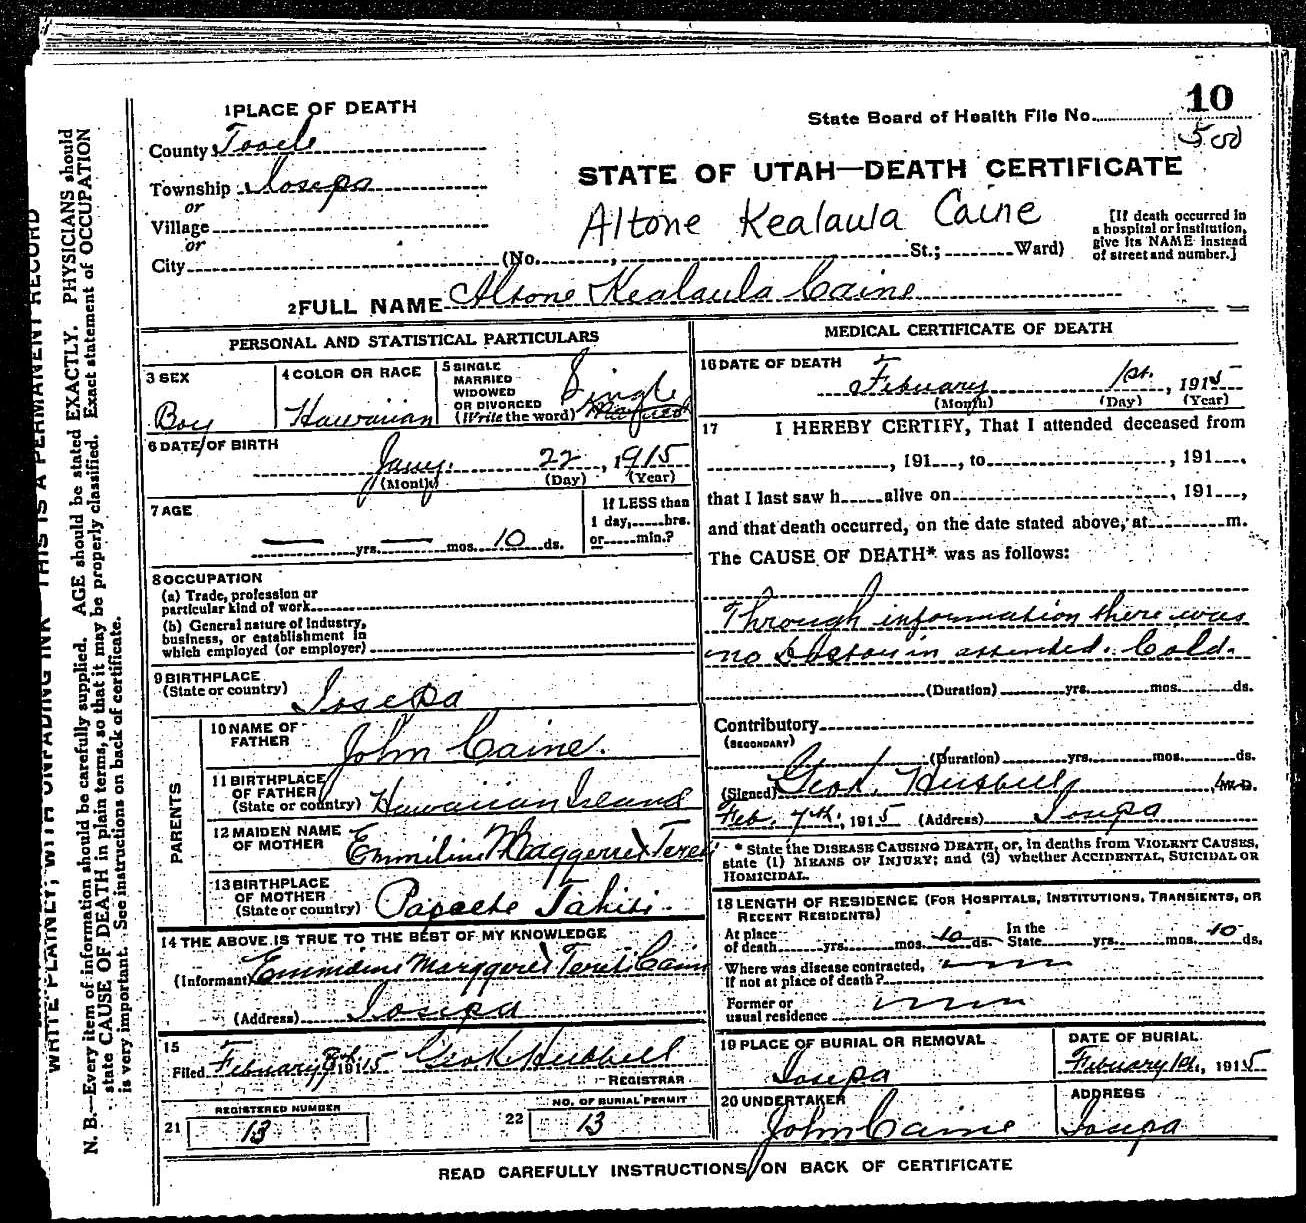 10
State Board of Health File No.
500
1 PLACE OF DEATH
County Tooele
Township Iosepa
or
Village
or
City
STATE OF UTAH—DEATH CERTIFICATE
Altone Kealaula Caine
(No. , St.; Ward)
[If death occurred in
a hospital or institution,
give its NAME instead
of street and number.]
2 FULL NAME Altone Kealaula Caine
PERSONAL AND STATISTICAL PARTICULARS
3 SEX
Boy
4 COLOR OR RACE
Hawaiian
5 SINGLE
MARRIED
WIDOWED
OR DIVORCED
(Write the word)
Single
6 DATE OF BIRTH
Jany. 22, 1915
(Month) (Day) (Year)
7 AGE
— yrs. — mos. 10 ds.
If LESS than
1 day, hrs.
or min.?
8 OCCUPATION
(a) Trade, profession or
particular kind of work
(b) General nature of Industry,
business, or establishment in
which employed (or employer)
9 BIRTHPLACE
(State or country) Iosepa
PARENTS
10 NAME OF
FATHER John Caine.
11 BIRTHPLACE
OF FATHER
(State or country) Hawaiian Island
12 MAIDEN NAME
OF MOTHER
13 BIRTHPLACE
OF MOTHER
(State or country) Papaete Tahiti.
14 THE ABOVE IS TRUE TO THE BEST OF MY KNOWLEDGE
(Informant)
(Address) Iosepa
15
Filed February 8th 1915 Geo K Hubbell
REGISTRAR
REGISTERED NUMBER
21 13
NO. OF BURIAL PERMIT
22 13
MEDICAL CERTIFICATE OF DEATH
16 DATE OF DEATH
Febuary 1st. , 1915
(Month) (Day) (Year)
17 I HEREBY CERTIFY, That I attended deceased from
, 191 , to , 191 .
that I last saw h alive on , 191 ,
and that death occurred, on the date stated above, at m.
The CAUSE OF DEATH* was as follows:
Through information there was
no Doctor in attended. Cold.
(Duration) yrs. mos. ds.
Contributory
(SECONDARY)
(Duration) yrs. mos. ds.
(Signed) Geo K. Hubbell M.D.
Feb. 7th, 1915 (Address) Iosepa
* State the DISEASE CAUSING DEATH, or, in deaths from VIOLENT CAUSES,
state (1) MEANS OF INJURY; and (2) whether ACCIDENTAL, SUICIDAL OR
HOMICIDAL.
18 LENGTH OF RESIDENCE (FOR HOSPITALS, INSTITUTIONS, TRANSIENTS, OR
RECENT RESIDENTS)
At place In the
of death yrs. mos. 10 ds. State yrs. mos. 10 ds.
Where was disease contracted,
If not at place of death?
Former or
usual residence
19 PLACE OF BURIAL OR REMOVAL
Iosepa
DATE OF BURIAL
Febuary 1st, 1915
20 UNDERTAKER
John Caine
ADDRESS
Iosepa
READ CAREFULLY INSTRUCTIONS ON BACK OF CERTIFICATE
WRITE PLAINLY, WITH UNFADING INK THIS IS A PERMANENT RECORD
N. B.—Every item of information should be carefully supplied. AGE should be stated EXACTLY. PHYSICIANS should
state CAUSE OF DEATH in plain terms, so that it may be properly classified. Exact statement of OCCUPATION
is very important. See instructions on back of certificate.